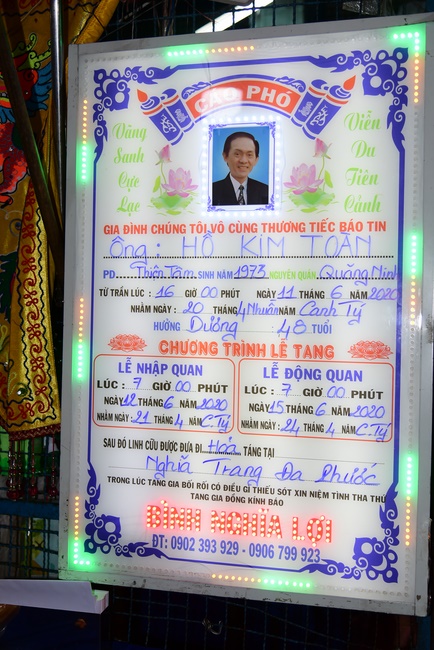 CÁO PHÓ
Vãng
Sanh
Cực
Lạc
Viễn
Du
Tiên
Cảnh
GIA ĐÌNH CHÚNG TÔI VÔ CÙNG THƯƠNG TIẾC BÁO TIN
Ông: HỒ KIM TOÀN
PD Thiện Tâm SINH NĂM 1973 NGUYÊN QUÁN Quảng Ninh
TỪ TRẦN LÚC: 16 GIỜ 00 PHÚT NGÀY 11 THÁNG 6 NĂM 2020
NHẰM NGÀY: 20 THÁNG 4 Nhuần NĂM Canh Tý
HƯỞNG Dương 48 TUỔI
CHƯƠNG TRÌNH LỄ TANG
LỄ NHẬP QUAN
LÚC: 7 GIỜ 00 PHÚT
NGÀY 12 THÁNG 6 NĂM 2020
NHẰM NGÀY: 21 THÁNG 4 NĂM C.Tý
LỄ ĐỘNG QUAN
LÚC: 7 GIỜ 00 PHÚT
NGÀY 15 THÁNG 6 NĂM 2020
NHẰM NGÀY: 24 THÁNG 4 NĂM C.Tý
SAU ĐÓ LINH CỮU ĐƯỢC ĐƯA ĐI Hỏa TÁNG TẠI
Nghĩa Trang Đa Phước
TRONG LÚC TANG GIA BỐI RỐI CÓ ĐIỀU GÌ THIẾU SÓT XIN NIỆM TÌNH THA THỨ
TANG GIA ĐỒNG KÍNH BÁO
BÌNH NGHĨA LỢI
ĐT: 0902 393 929 - 0906 799 923